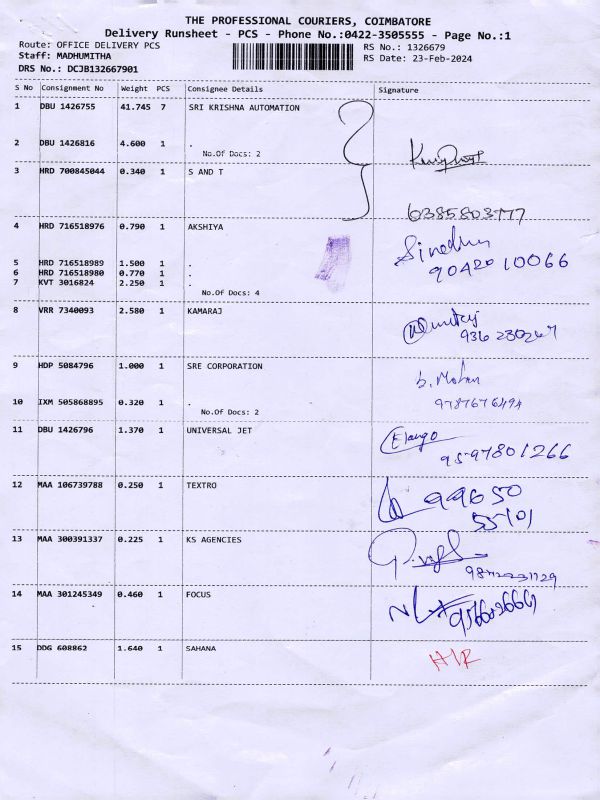 THE PROFESSIONAL COURIERS, COIMBATORE
Delivery Runsheet - PCS - Phone No.:0422-3505555 - Page No.:1
Route: OFFICE DELIVERY PCS RS No.: 1326679
Staff: MADHUMITHA RS Date: 23-Feb-2024
DRS No.: DCJB132667901
S No Consignment No Weight PCS Consignee Details Signature
1 DBU 1426755 41.745 7 SRI KRISHNA AUTOMATION
2 DBU 1426816 4.600 1 .
No.Of Docs: 2
3 HRD 700845044 0.340 1 S AND T
6385803777
4 HRD 716518976 0.790 1 AKSHIYA
5 HRD 716518989 1.500 1 .
6 HRD 716518980 0.770 1 . 9042010066
7 KVT 3016824 2.250 1 .
No.Of Docs: 4
8 VRR 7340093 2.580 1 KAMARAJ
9 HDP 5084796 1.000 1 SRE CORPORATION
b. Mohan
10 IXM 505868895 0.320 1 .
No.Of Docs: 2
11 DBU 1426796 1.370 1 UNIVERSAL JET Elango
9597801266
12 MAA 106739788 0.250 1 TEXTRO 99650
55101
13 MAA 300391337 0.225 1 KS AGENCIES
14 MAA 301245349 0.460 1 FOCUS
15 DDG 608862 1.640 1 SAHANA